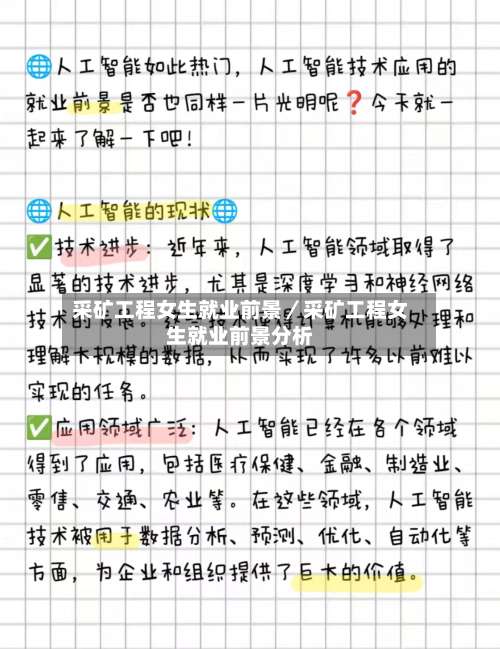 🌐人工智能如此热门，人工智能技术应用的
就业前景是否也同样一片光明呢❓今天就一
起来了解一下吧！
🌐人工智能的现状🌐
✅技术进步：近年来，人工智能领域取得了
显著的技术进步，尤其是深度学习和神经网络
技术的发展。
采矿工程女生就业前景/采矿工程女
计算机能够处理和
生就业前景分析
理解大规模的数据，从而实现了许多以前难以
实现的任务。
✅应用领域广泛：人工智能已经在各个领域
得到了应用，包括医疗保健、金融、制造业、
零售、交通、农业等。在这些领域，人工智能
技术被用于数据分析、预测、优化、自动化等
方面，为企业和组织提供了巨大的价值。